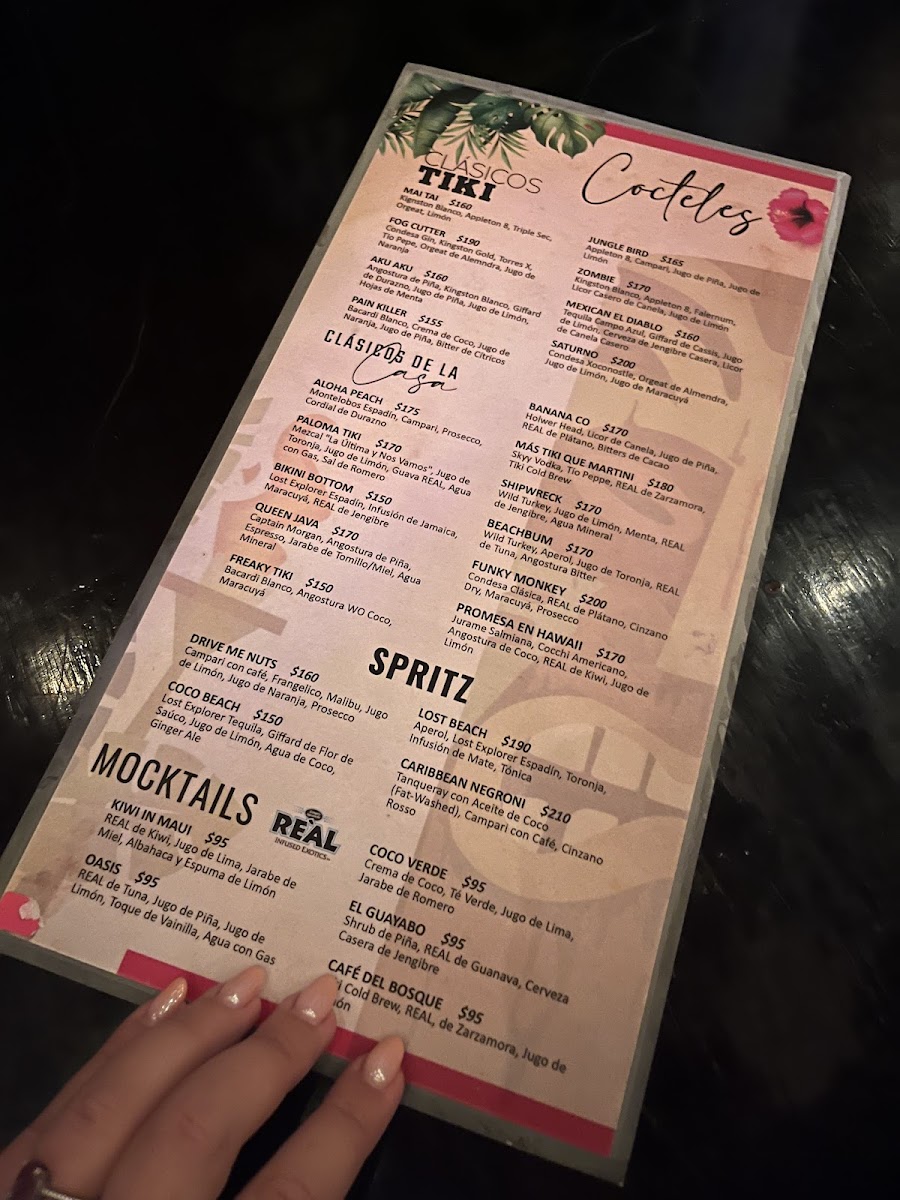 CLÁSICOS
TIKI
Cocteles
MAI TAI $160
Kignston Blanco, Appleton 8, Triple Sec,
Orgeat, Limón
FOG CUTTER $190
Condesa Gin, Kingston Gold, Torres X,
Tio Pepe, Orgeat de Alemndra, Jugo de
Naranja
AKU AKU $160
Angostura de Piña, Kingston Blanco, Giffard
de Durazno, Jugo de Piña, Jugo de Limón,
Hojas de Menta
PAIN KILLER $155
Bacardi Blanco, Crema de Coco, Jugo de
Naranja, Jugo de Piña, Bitter de Citricos
JUNGLE BIRD $165
Appleton 8, Campari, Jugo de Piña, Jugo de
Limón
ZOMBIE $170
Kingston Blanco, Appleton 8, Falernum,
Licor Casero de Canela, Jugo de Limón
MEXICAN EL DIABLO $160
Tequila Campo Azul, Giffard de Cassis, Jugo
de Limón, Cerveza de Jengibre Casera, Licor
de Canela Casero
SATURNO $200
Condesa Xoconostle, Orgeat de Almendra,
Jugo de Limón, Jugo de Maracuyá
CLÁSICOS DE LA
Casa
ALOHA PEACH $175
Montelobos Espadín, Campari, Prosecco,
Cordial de Durazno
PALOMA TIKI $170
Mezcal "La Última y Nos Vamos", Jugo de
Toronja, Jugo de Limón, Guava REAL, Agua
con Gas, Sal de Romero
BIKINI BOTTOM $150
Lost Explorer Espadin, Infusión de Jamaica,
Maracuyá, REAL de Jengibre
QUEEN JAVA $170
Captain Morgan, Angostura de Piña,
Espresso, Jarabe de Tomillo/Miel, Agua
Mineral
FREAKY TIKI $150
Bacardi Blanco, Angostura WO Coco,
Maracuyá
BANANA CO $170
Holwer Head, Licor de Canela, Jugo de Piña,
REAL de Plátano, Bitters de Cacao
MÁS TIKI QUE MARTINI $180
Skyy Vodka, Tio Peppe, REAL de Zarzamora,
Tiki Cold Brew
SHIPWRECK $170
Wild Turkey, Jugo de Limón, Menta, REAL
de Jengibre, Agua Mineral
BEACHBUM $170
Wild Turkey, Aperol, Jugo de Toronja, REAL
de Tuna, Angostura Bitter
FUNKY MONKEY $200
Condesa Clásica, REAL de Plátano, Cinzano
Dry, Maracuyá, Prosecco
PROMESA EN HAWAII $170
Jurame Salmiana, Cocchi Americano,
Angostura de Coco, REAL de Kiwi, Jugo de
Limón
SPRITZ
DRIVE ME NUTS $160
Campari con café, Frangelico, Malibu, Jugo
de Limón, Jugo de Naranja, Prosecco
COCO BEACH $150
Lost Explorer Tequila, Giffard de Flor de
Saúco, Jugo de Limón, Agua de Coco,
Ginger Ale
LOST BEACH $190
Aperol, Lost Explorer Espadín, Toronja,
Infusión de Mate, Tónica
CARIBBEAN NEGRONI $210
Tanqueray con Aceite de Coco
(Fat-Washed), Campari con Café, Cinzano
Rosso
MOCKTAILS
REÀL
INFUSED EXOTICS
KIWI IN MAUI $95
REAL de Kiwi, Jugo de Lima, Jarabe de
Miel, Albahaca y Espuma de Limón
OASIS $95
REAL de Tuna, Jugo de Piña, Jugo de
Limón, Toque de Vainilla, Agua con Gas
COCO VERDE $95
Crema de Coco, Té Verde, Jugo de Lima,
Jarabe de Romero
EL GUAYABO $95
Shrub de Piña, REAL de Guanava, Cerveza
Casera de Jengibre
CAFÉ DEL BOSQUE $95
Cold Brew, REAL, de Zarzamora, Jugo de